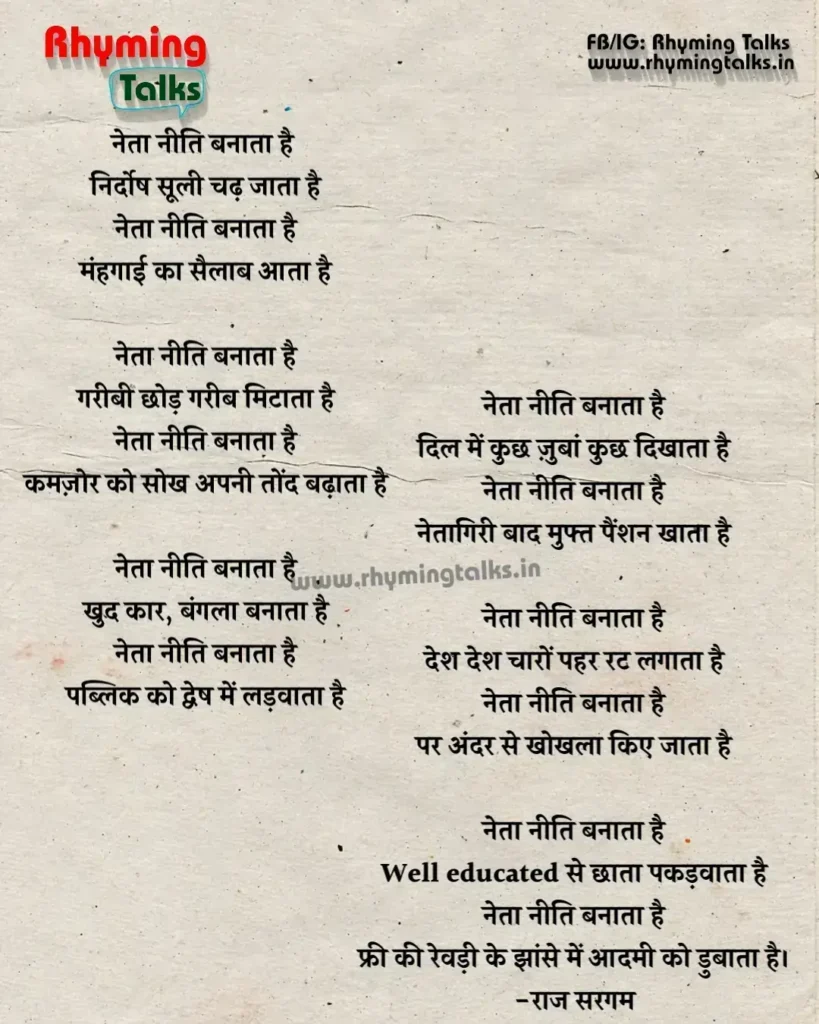 Rhyming
Talks
FB/IG: Rhyming Talks
www.rhymingtalks.in
नेता नीति बनाता है
निर्दोष सूली चढ़ जाता है
नेता नीति बनाता है
मंहगाई का सैलाब आता है
नेता नीति बनाता है
गरीबी छोड़ गरीब मिटाता है
नेता नीति बनाता है
कमज़ोर को सोख अपनी तोंद बढ़ाता है
नेता नीति बनाता है
खुद कार, बंगला बनाता है
नेता नीति बनाता है
पब्लिक को द्वेष में लड़वाता है
www.rhymingtalks.in
नेता नीति बनाता है
दिल में कुछ ज़ुबां कुछ दिखाता है
नेता नीति बनाता है
नेतागिरी बाद मुफ्त पैंशन खाता है
नेता नीति बनाता है
देश देश चारों पहर रट लगाता है
नेता नीति बनाता है
पर अंदर से खोखला किए जाता है
नेता नीति बनाता है
Well educated से छाता पकड़वाता है
नेता नीति बनाता है
फ्री की रेवड़ी के झांसे में आदमी को डुबाता है।
-राज सरगम